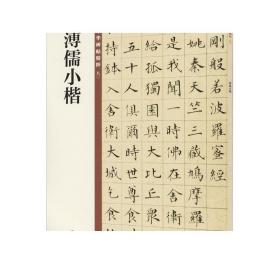 溥儒小楷
剛般若波羅蜜經
姚秦天竺三藏鳩摩羅
是我聞一時佛在舍衛
給孤獨園與大比丘衆
五十人俱爾時世尊食
持鉢入舍衛大城乞食